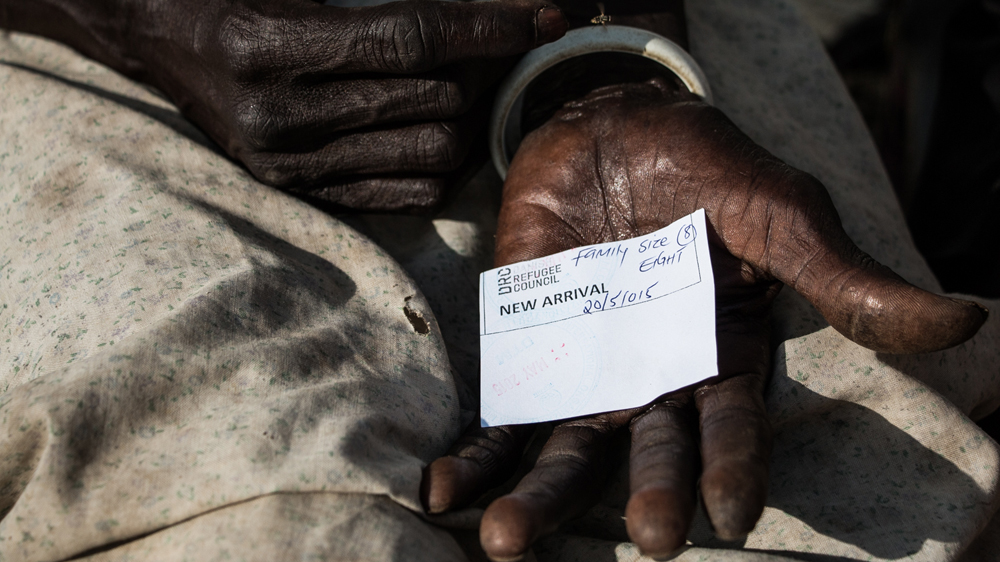 Family Size 8
EIGHT
DRC
DANISH
REFUGEE
COUNCIL
NEW ARRIVAL
20/5/015